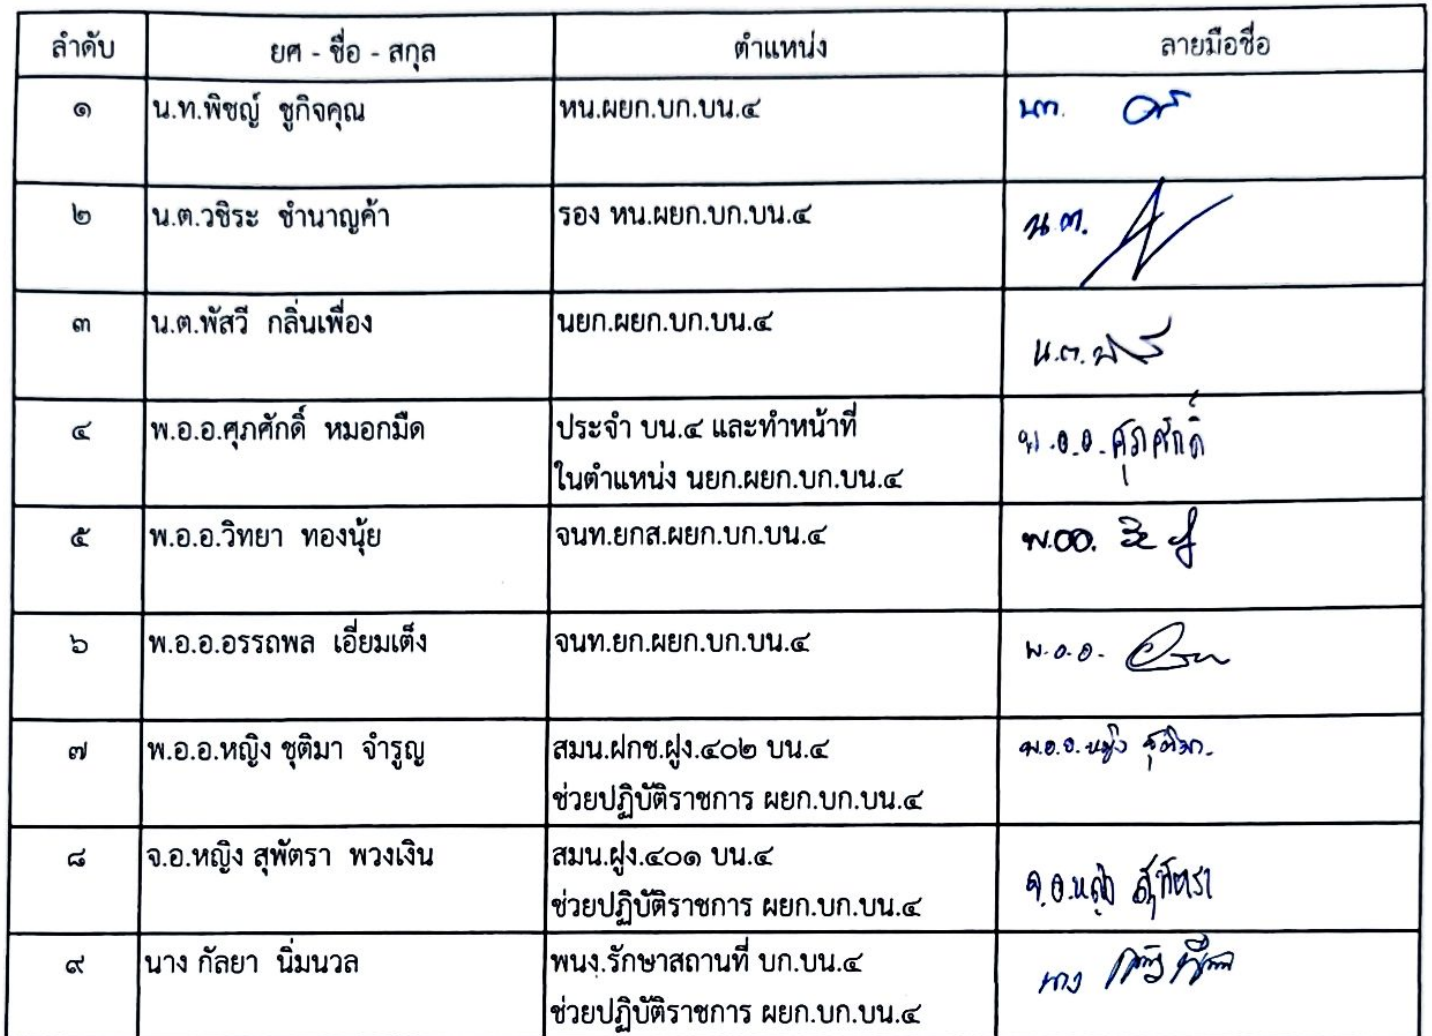 ลำดับ ยศ - ชื่อ - สกุล ตำแหน่ง ลายมือชื่อ
๑ น.ท.พิชญ์ ชูกิจคุณ หน.ผยก.บก.บน.๔ น.ท.
๒ น.ต.วชิระ ชำนาญค้า รอง หน.ผยก.บก.บน.๔ น.ต.
๓ น.ต.พัสวี กลิ่นเฟื่อง นยก.ผยก.บก.บน.๔ น.ต.
๔ พ.อ.อ.ศุภศักดิ์ หมอกมืด ประจำ บน.๔ และทำหน้าที่ พ.อ.อ.ศุภศักดิ์
ในตำแหน่ง นยก.ผยก.บก.บน.๔
๕ พ.อ.อ.วิทยา ทองนุ้ย จนท.ยกส.ผยก.บก.บน.๔ พ.อ.อ.
๖ พ.อ.อ.อรรถพล เอี่ยมเต็ง จนท.ยก.ผยก.บก.บน.๔ พ.อ.อ.
๗ พ.อ.อ.หญิง ชุติมา จำรูญ สมน.ฝกช.ฝูง.๔๐๒ บน.๔ พ.อ.อ.หญิง ชุติมา
ช่วยปฏิบัติราชการ ผยก.บก.บน.๔
๘ จ.อ.หญิง สุพัตรา พวงเงิน สมน.ฝูง.๔๐๑ บน.๔ จ.อ.หญิง สุพัตรา
ช่วยปฏิบัติราชการ ผยก.บก.บน.๔
๙ นาง กัลยา นิ่มนวล พนง.รักษาสถานที่ บก.บน.๔ นาง
ช่วยปฏิบัติราชการ ผยก.บก.บน.๔